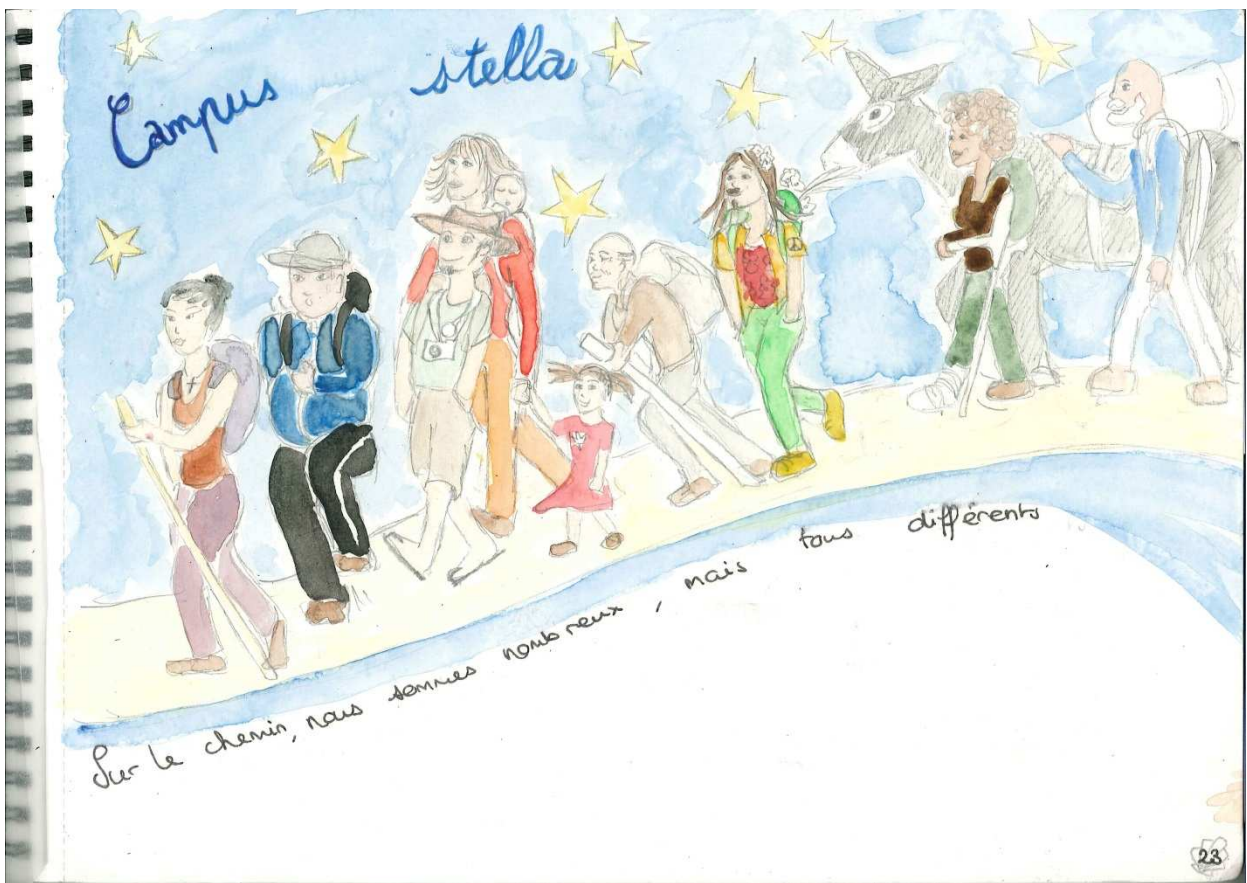 Campus stella
Sur le chemin, nous sommes nombreux, mais tous différents
23